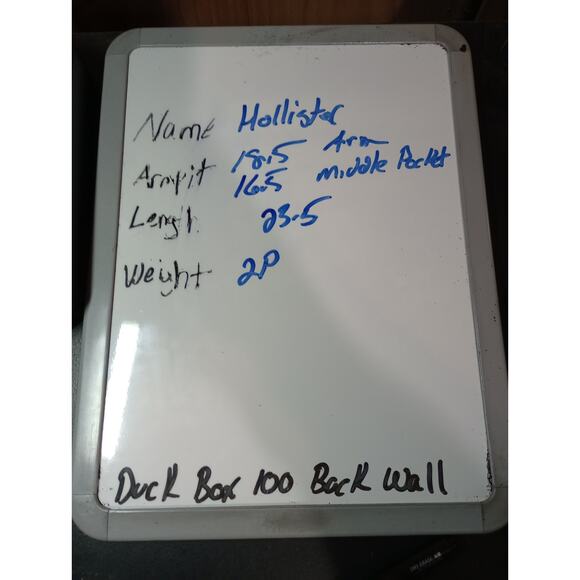 Name Hollister
Armpit 18.5 Arm
16.5 Middle Pocket
Length 23.5
Weight 2P
Duck Box 100 Back Wall